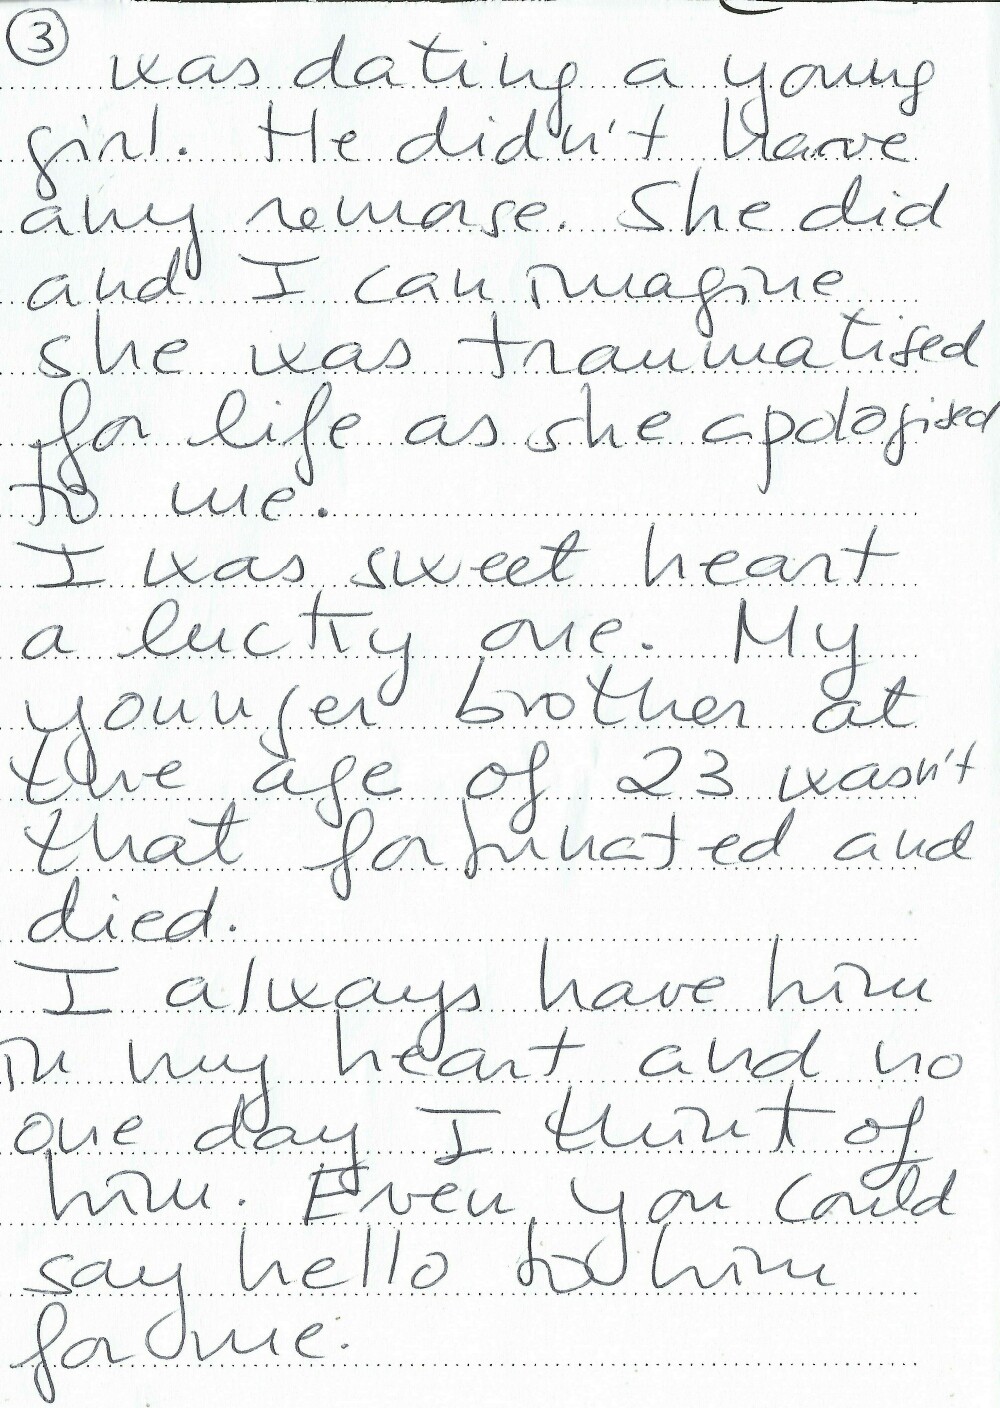 3
was dating a young
girl. He didn't have
any remorse. She did
and I can imagine
she was traumatised
for life as she apologised
to me.
I was sweet heart
a lucky one. My
younger brother at
the age of 23 wasn't
that fortunated and
died.
I always have him
in my heart and no
one day I think of
him. Even you could
say hello to him
for me.